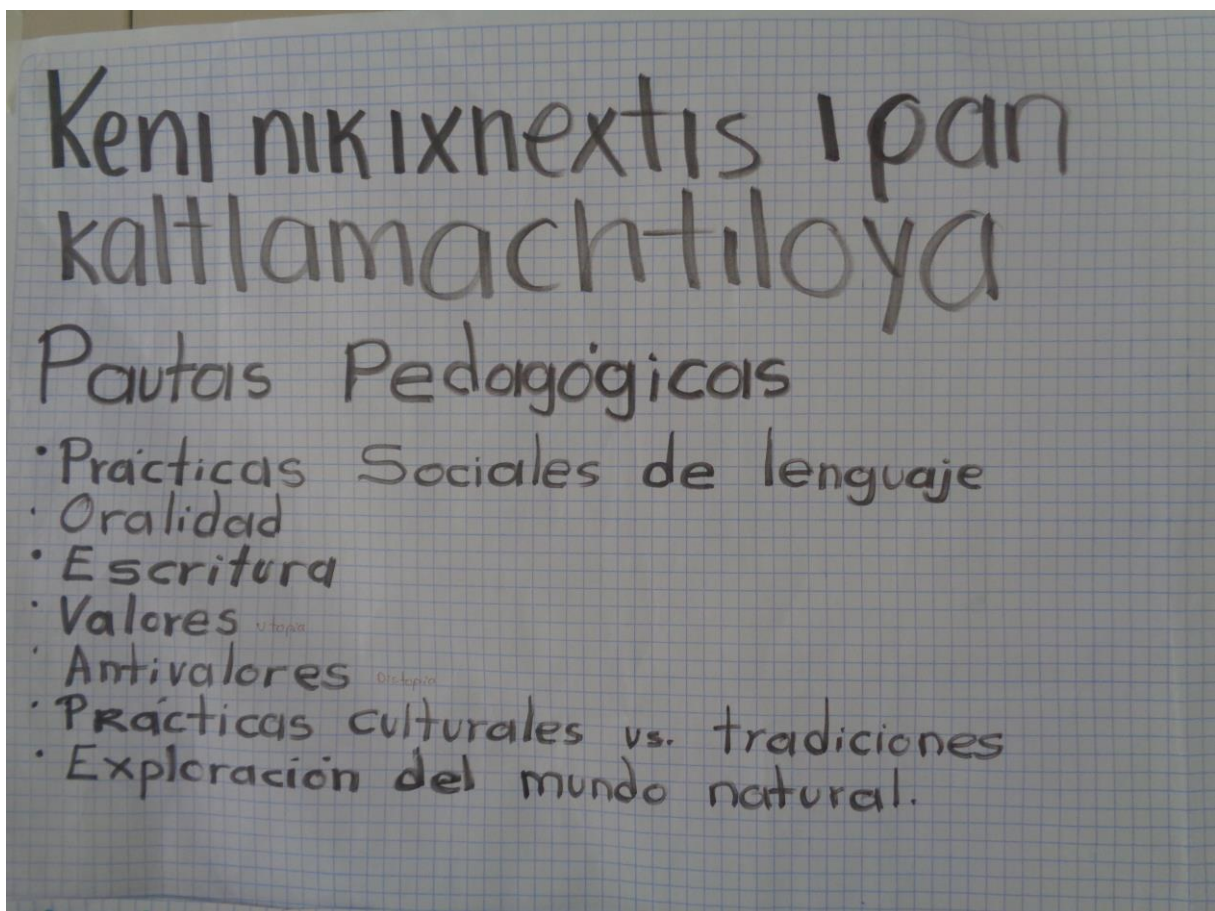 Keni nikixnextis ipan
kaltlamachtiloya
Pautas Pedagógicas
• Prácticas Sociales de lenguaje
• Oralidad
• Escritura
• Valores Utopía
• Antivalores Distopia
• Prácticas culturales vs. tradiciones
• Exploración del mundo natural.